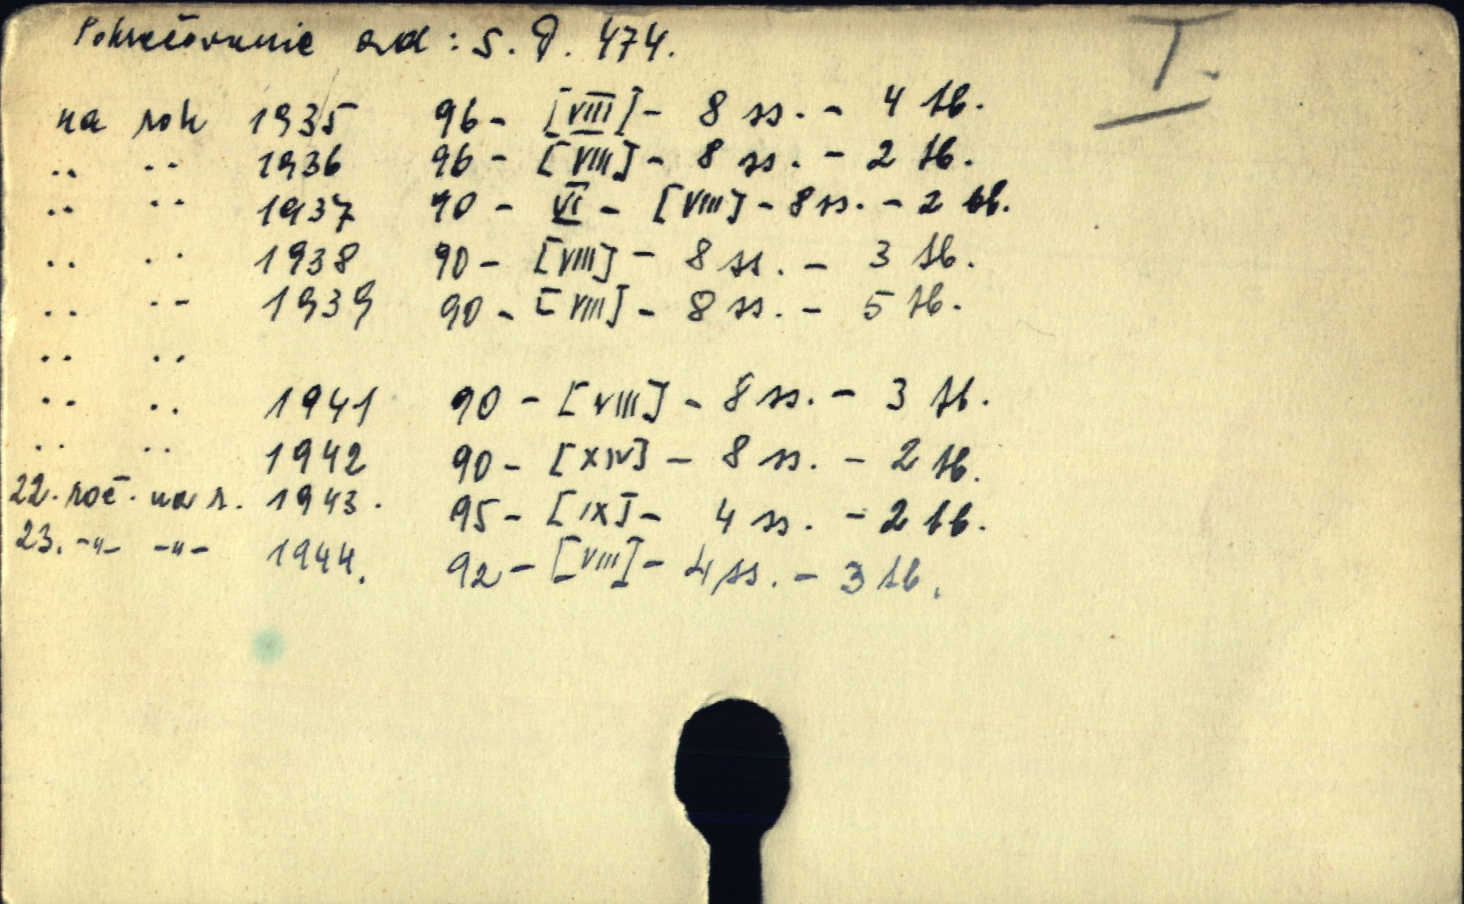 Pokračovanie od: S. D. 474.
I.
na rok 1935 96 - [VIII] - 8 ss. - 4 tb.
.. .. 1936 96 - [VIII] - 8 ss. - 2 tb.
.. .. 1937 90 - VI - [VIII] - 8 ss. - 2 tb.
.. .. 1938 90 - [VIII] - 8 ss. - 3 tb.
.. .. 1939 90 - [VIII] - 8 ss. - 5 tb.
.. ..
.. .. 1941 90 - [VIII] - 8 ss. - 3 tb.
.. .. 1942 90 - [XIV] - 8 ss. - 2 tb.
22. roč. na r. 1943. 95 - [IX] - 4 ss. - 2 tb.
23. -"- -"- 1944. 92 - [VIII] - 4 ss. - 3 tb.